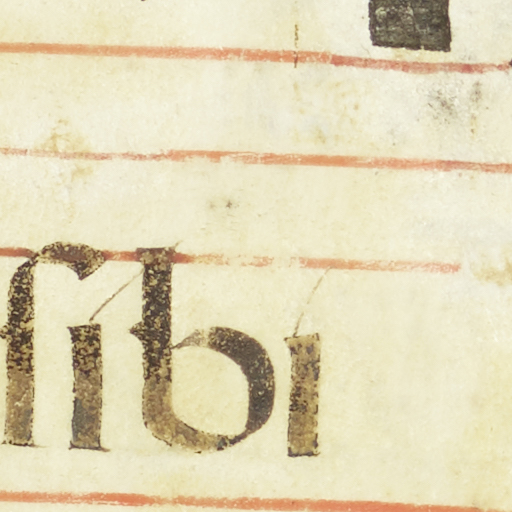 ſibi